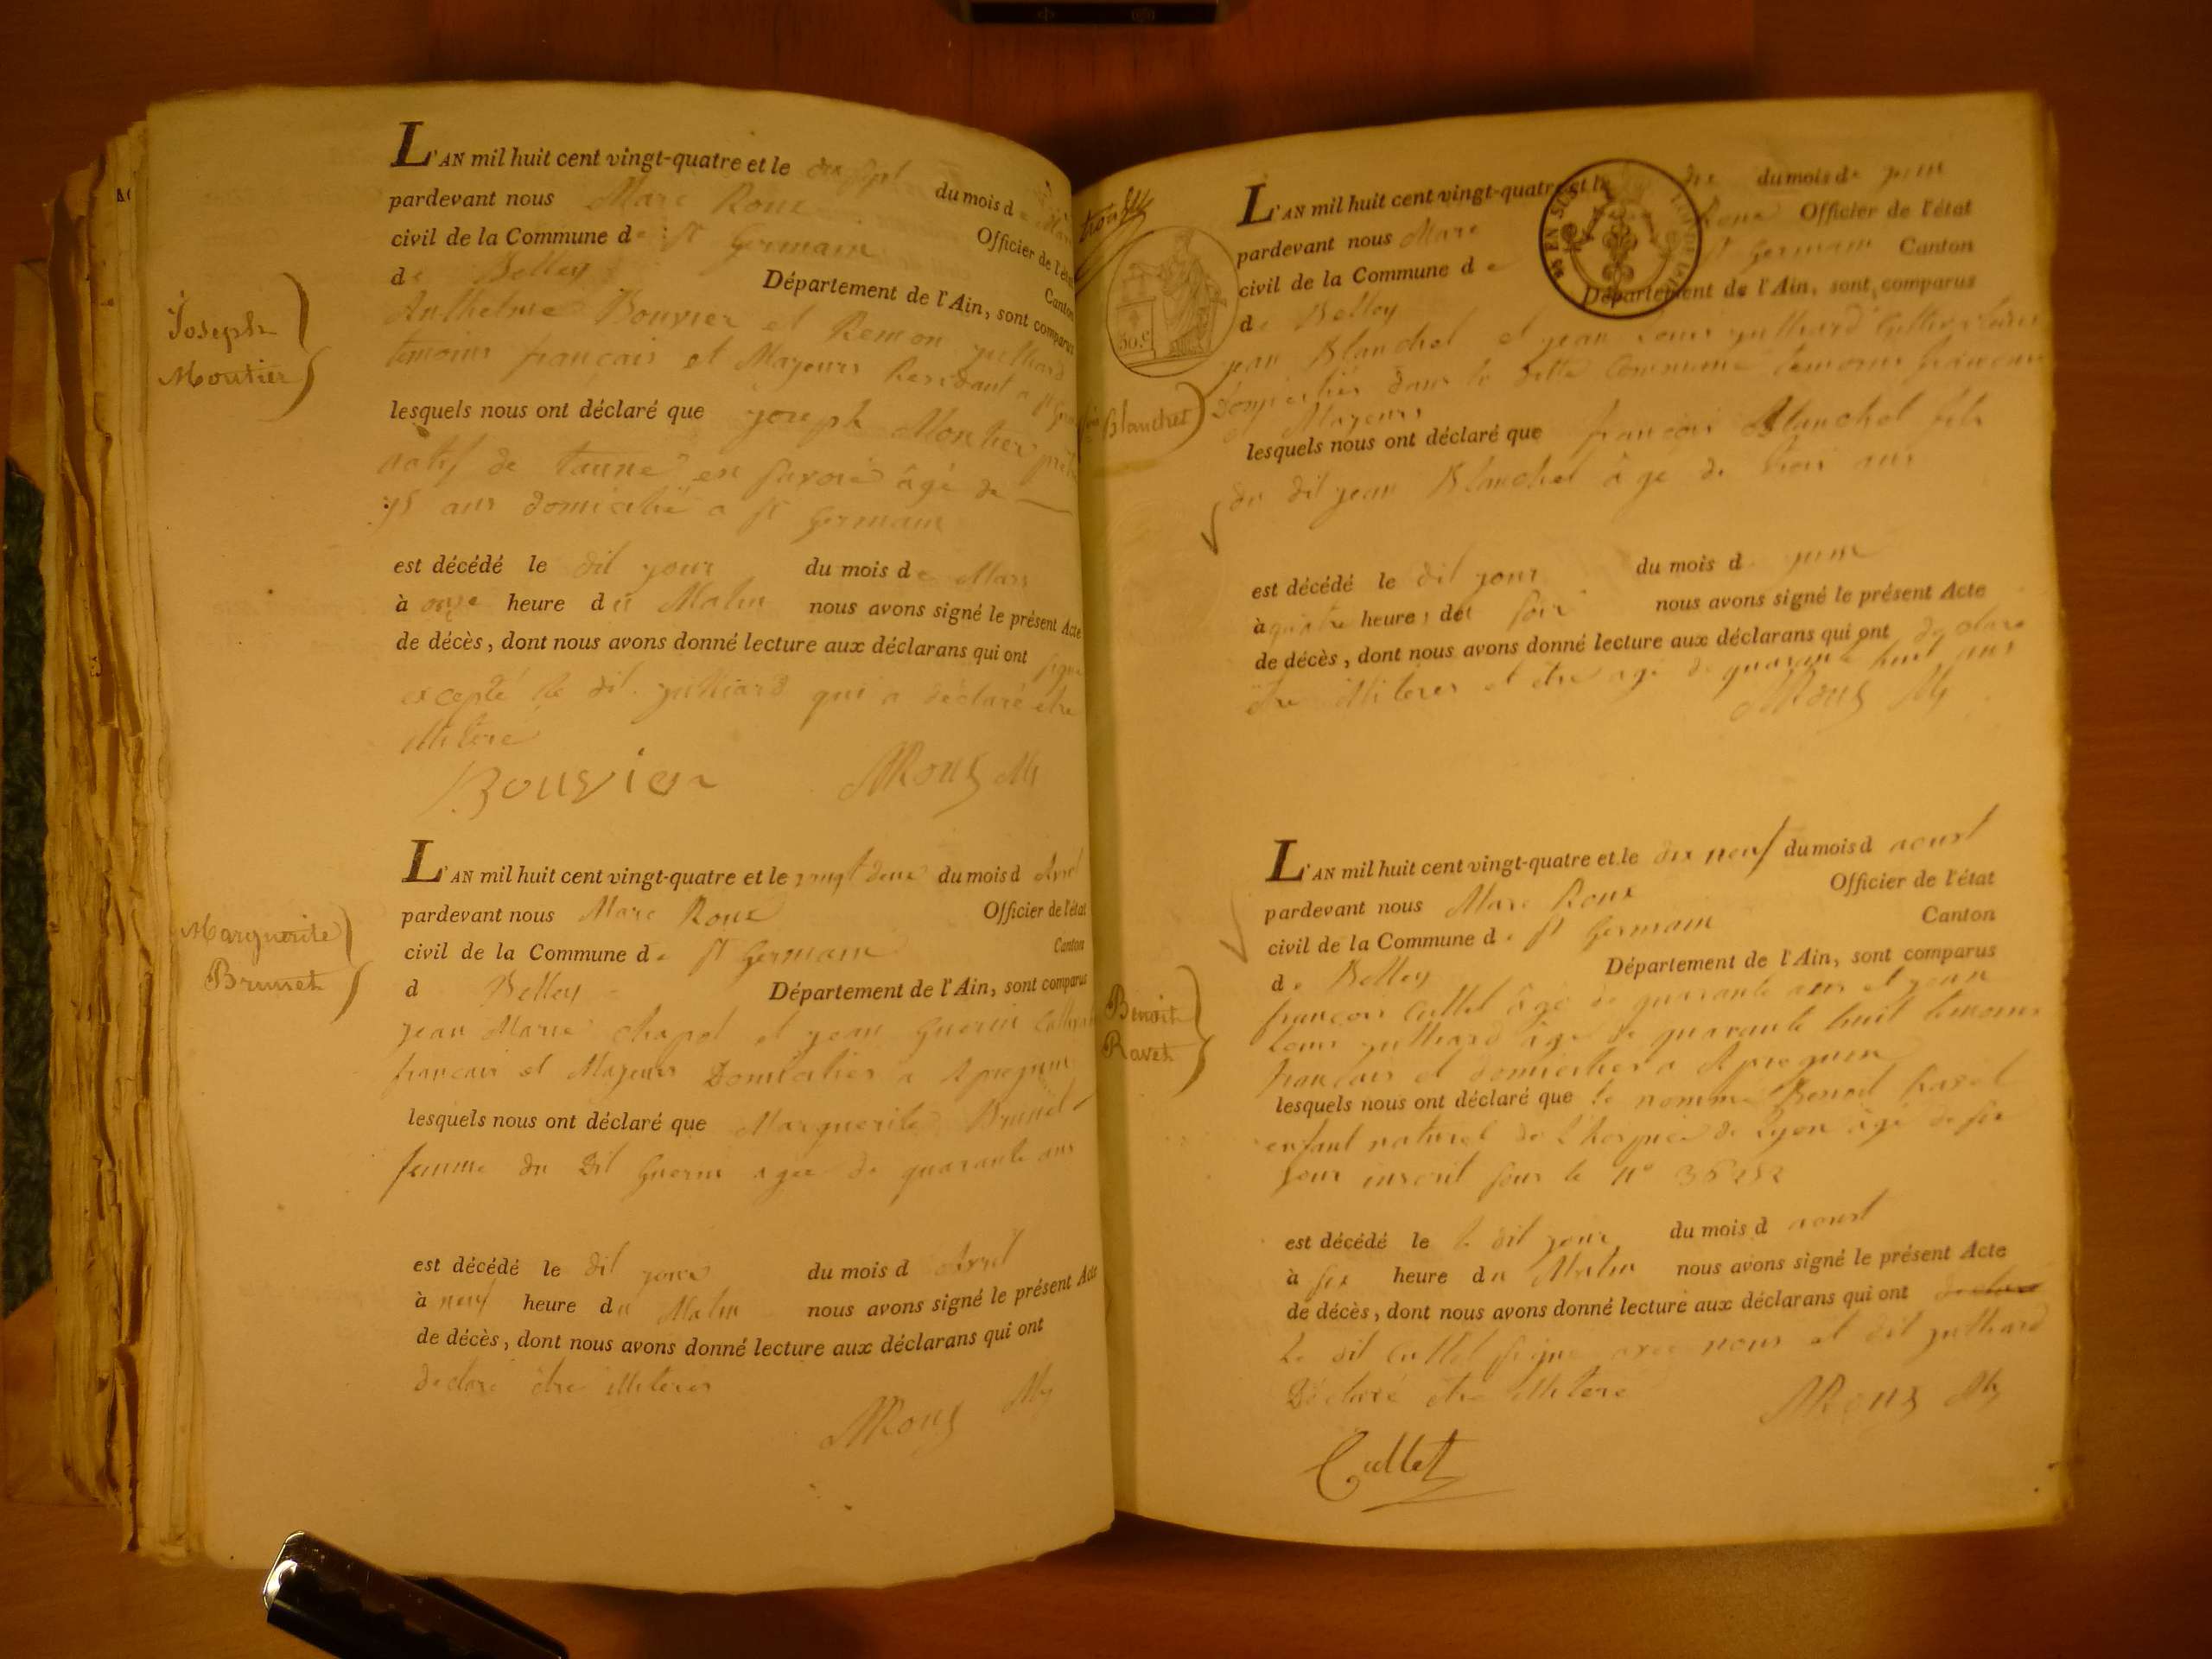 L'AN mil huit cent vingt-quatre et le dix sept du mois de Mars
pardevant nous Marc Roux Officier de l'état
civil de la Commune de St Germain Canton
de Belley Département de l'Ain, sont comparus
Anthelme Bouvier et Remon julliard
temoins francais et Mayeurs Residant a St
lesquels nous ont déclaré que joseph Montier
natif de en savoie âgé de
75 ans domicilié a St Germain
est décédé le dit jour du mois de Mars
à onze heure du Matin nous avons signé le présent Acte
de décès, dont nous avons donné lecture aux déclarans qui ont signé
excepté le dit julliard qui a déclaré etre
illiteré
Bouvier MRoux
Joseph
Moutier
L'AN mil huit cent vingt-quatre et le vingt deux du mois d Avril
pardevant nous Marc Roux Officier de l'état
civil de la Commune de St Germain Canton
d Belley Département de l'Ain, sont comparus
jean Marie chapot et jean Guerin
francais et Mayeurs Domiciliés a
lesquels nous ont déclaré que Marguerite Brunet
femme du Dit Guerin agée de quarante ans
est décédé le dit jour du mois d Avril
à neuf heure du Matin nous avons signé le présent Acte
de décès, dont nous avons donné lecture aux déclarans qui ont
declaré être illiterés
MRoux
Marguerite
Brunet
30 c.
L'AN mil huit cent vingt-quatre et le du mois de juin
pardevant nous Marc Roux Officier de l'état
civil de la Commune de St Germain Canton
de Belley Département de l'Ain, sont comparus
jean Blanchet et jean Louis julliard
Domiciliés dans la ditte Commune temoins francais
et Mayeurs
lesquels nous ont déclaré que françois Blanchet fils
du dit jean Blanchet âgé de trois ans
est décédé le dit jour du mois d juin
à quatre heures du soir nous avons signé le présent Acte
de décès, dont nous avons donné lecture aux déclarans qui ont declaré
être illiterés et être agé de quarante huit ans
MRoux
Blanchet
L'AN mil huit cent vingt-quatre et le dix neuf du mois d aoust
pardevant nous Marc Roux Officier de l'état
civil de la Commune de St Germain Canton
de Belley Département de l'Ain, sont comparus
françois Cullet âgé de quarante ans et jean
Louis julliard âgé de quarante huit temoins
francais et domiciliés a
lesquels nous ont déclaré que le nommé Benoit Ravet
enfant naturel de L'hospice de Lyon âgé de six
jour inscrit sous le N° 36252
est décédé le le dit jour du mois d aoust
à six heure du Matin nous avons signé le présent Acte
de décès, dont nous avons donné lecture aux déclarans qui ont
Le dit Cullet signé avec nous et dit julliard
Déclaré être illiteré
MRoux
Cullet
Benoit
Ravet